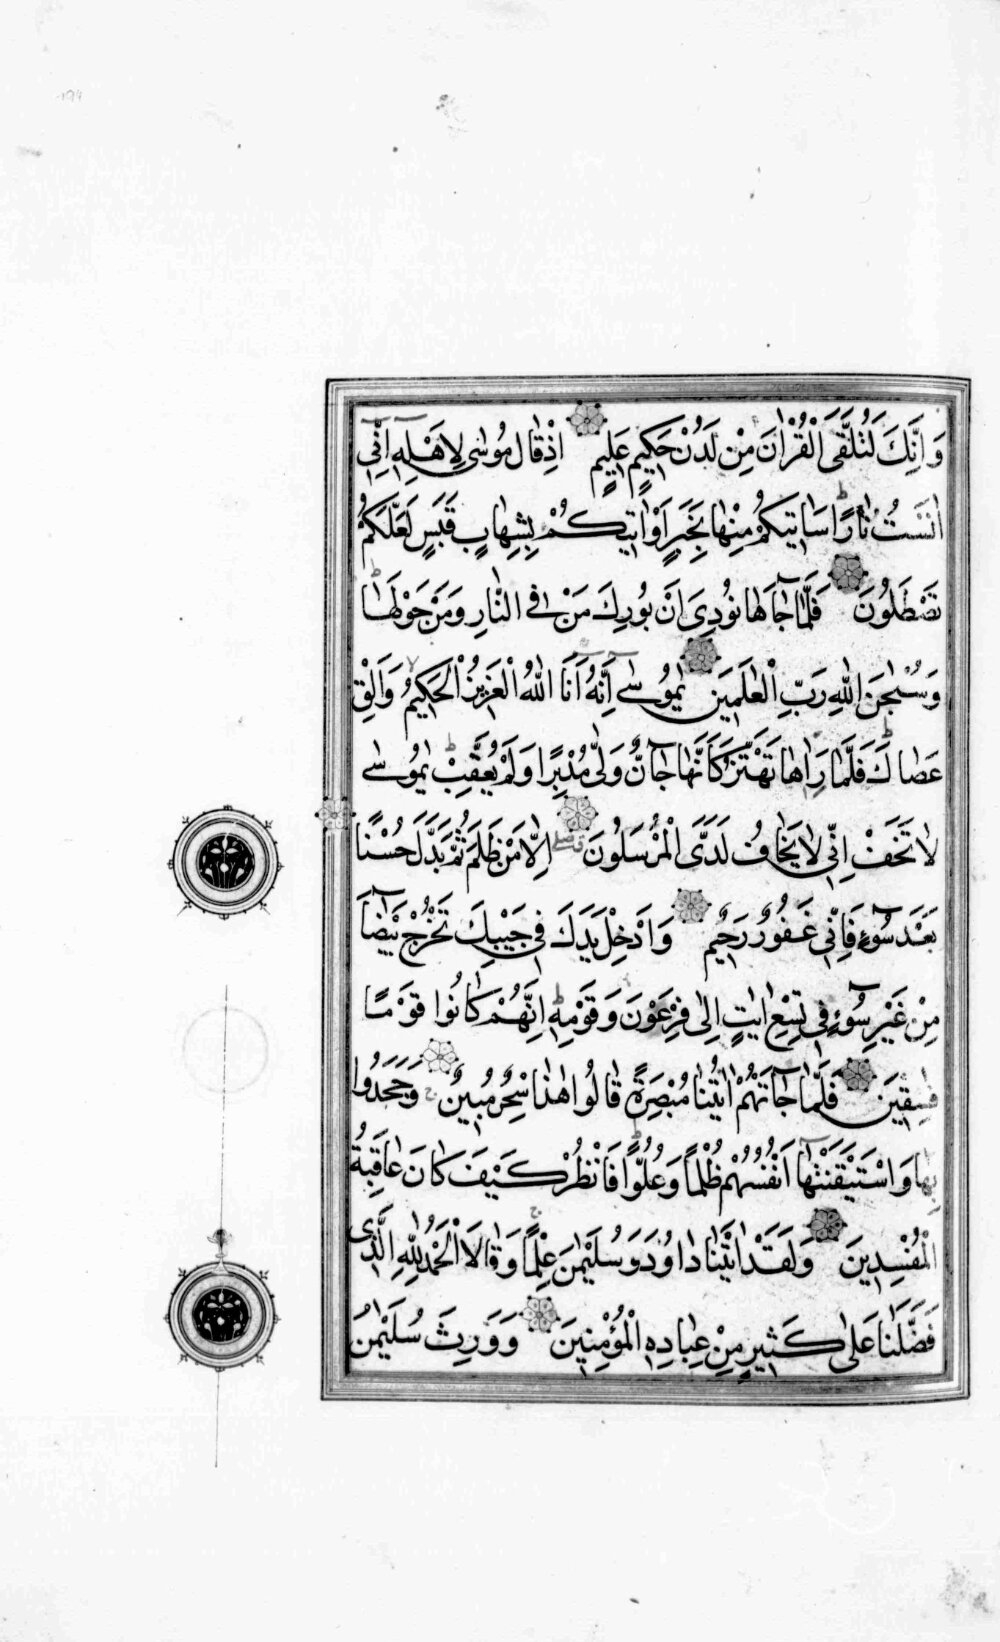 194
وَاِنَّكَ لَتُلَقَّى الْقُرْاٰنَ مِنْ لَدُنْ حَكِيمٍ عَلِيمٍ اِذْ قَالَ مُوسٰى لِاَهْلِهٖٓ اِنّٖٓي
اٰنَسْتُ نَارًاۜ سَاٰتٖيكُمْ مِنْهَا بِخَبَرٍ اَوْ اٰتٖيكُمْ بِشِهَابٍ قَبَسٍ لَعَلَّكُمْ
تَصْطَلُونَ فَلَمَّا جَٓاءَهَا نُودِيَ اَنْ بُورِكَ مَنْ فِي النَّارِ وَمَنْ حَوْلَهَاۜ
وَسُبْحٰنَ اللّٰهِ رَبِّ الْعٰلَمٖينَ يٰمُوسٰٓى اِنَّهُٓ اَنَا اللّٰهُ الْعَزٖيزُ الْحَكٖيمُ وَاَلْقِ
عَصَاكَۜ فَلَمَّا رَاٰهَا تَهْتَزُّ كَاَنَّهَا جَٓانٌّ وَلّٰى مُدْبِرًا وَلَمْ يُعَقِّبْۜ يٰمُوسٰى
لَا تَخَفْ اِنّٖي لَا يَخَافُ لَدَيَّ الْمُرْسَلُونَ اِلَّا مَنْ ظَلَمَ ثُمَّ بَدَّلَ حُسْنًا
بَعْدَ سُٓوءٍ فَاِنّٖي غَفُورٌ رَحٖيمٌ وَاَدْخِلْ يَدَكَ فٖي جَيْبِكَ تَخْرُجْ بَيْضَٓاءَ
مِنْ غَيْرِ سُٓوءٍ فٖي تِسْعِ اٰيَاتٍ اِلٰى فِرْعَوْنَ وَقَوْمِهٖۜ اِنَّهُمْ كَانُوا قَوْمًا
فٰسِقٖينَ فَلَمَّا جَٓاءَتْهُمْ اٰيَاتُنَا مُبْصِرَةً قَالُوا هٰذَا سِحْرٌ مُبٖينٌ وَجَحَدُوا
بِهَا وَاسْتَيْقَنَتْهَٓا اَنْفُسُهُمْ ظُلْمًا وَعُلُوًّاۜ فَانْظُرْ كَيْفَ كَانَ عَاقِبَةُ
الْمُفْسِدٖينَ وَلَقَدْ اٰتَيْنَا دَاوُدَ وَسُلَيْمٰنَ عِلْمًاۚ وَقَالَا الْحَمْدُ لِلّٰهِ الَّذٖي
فَضَّلَنَا عَلٰى كَثٖيرٍ مِنْ عِبَادِهِ الْمُؤْمِنٖينَ وَوَرِثَ سُلَيْمٰنُ